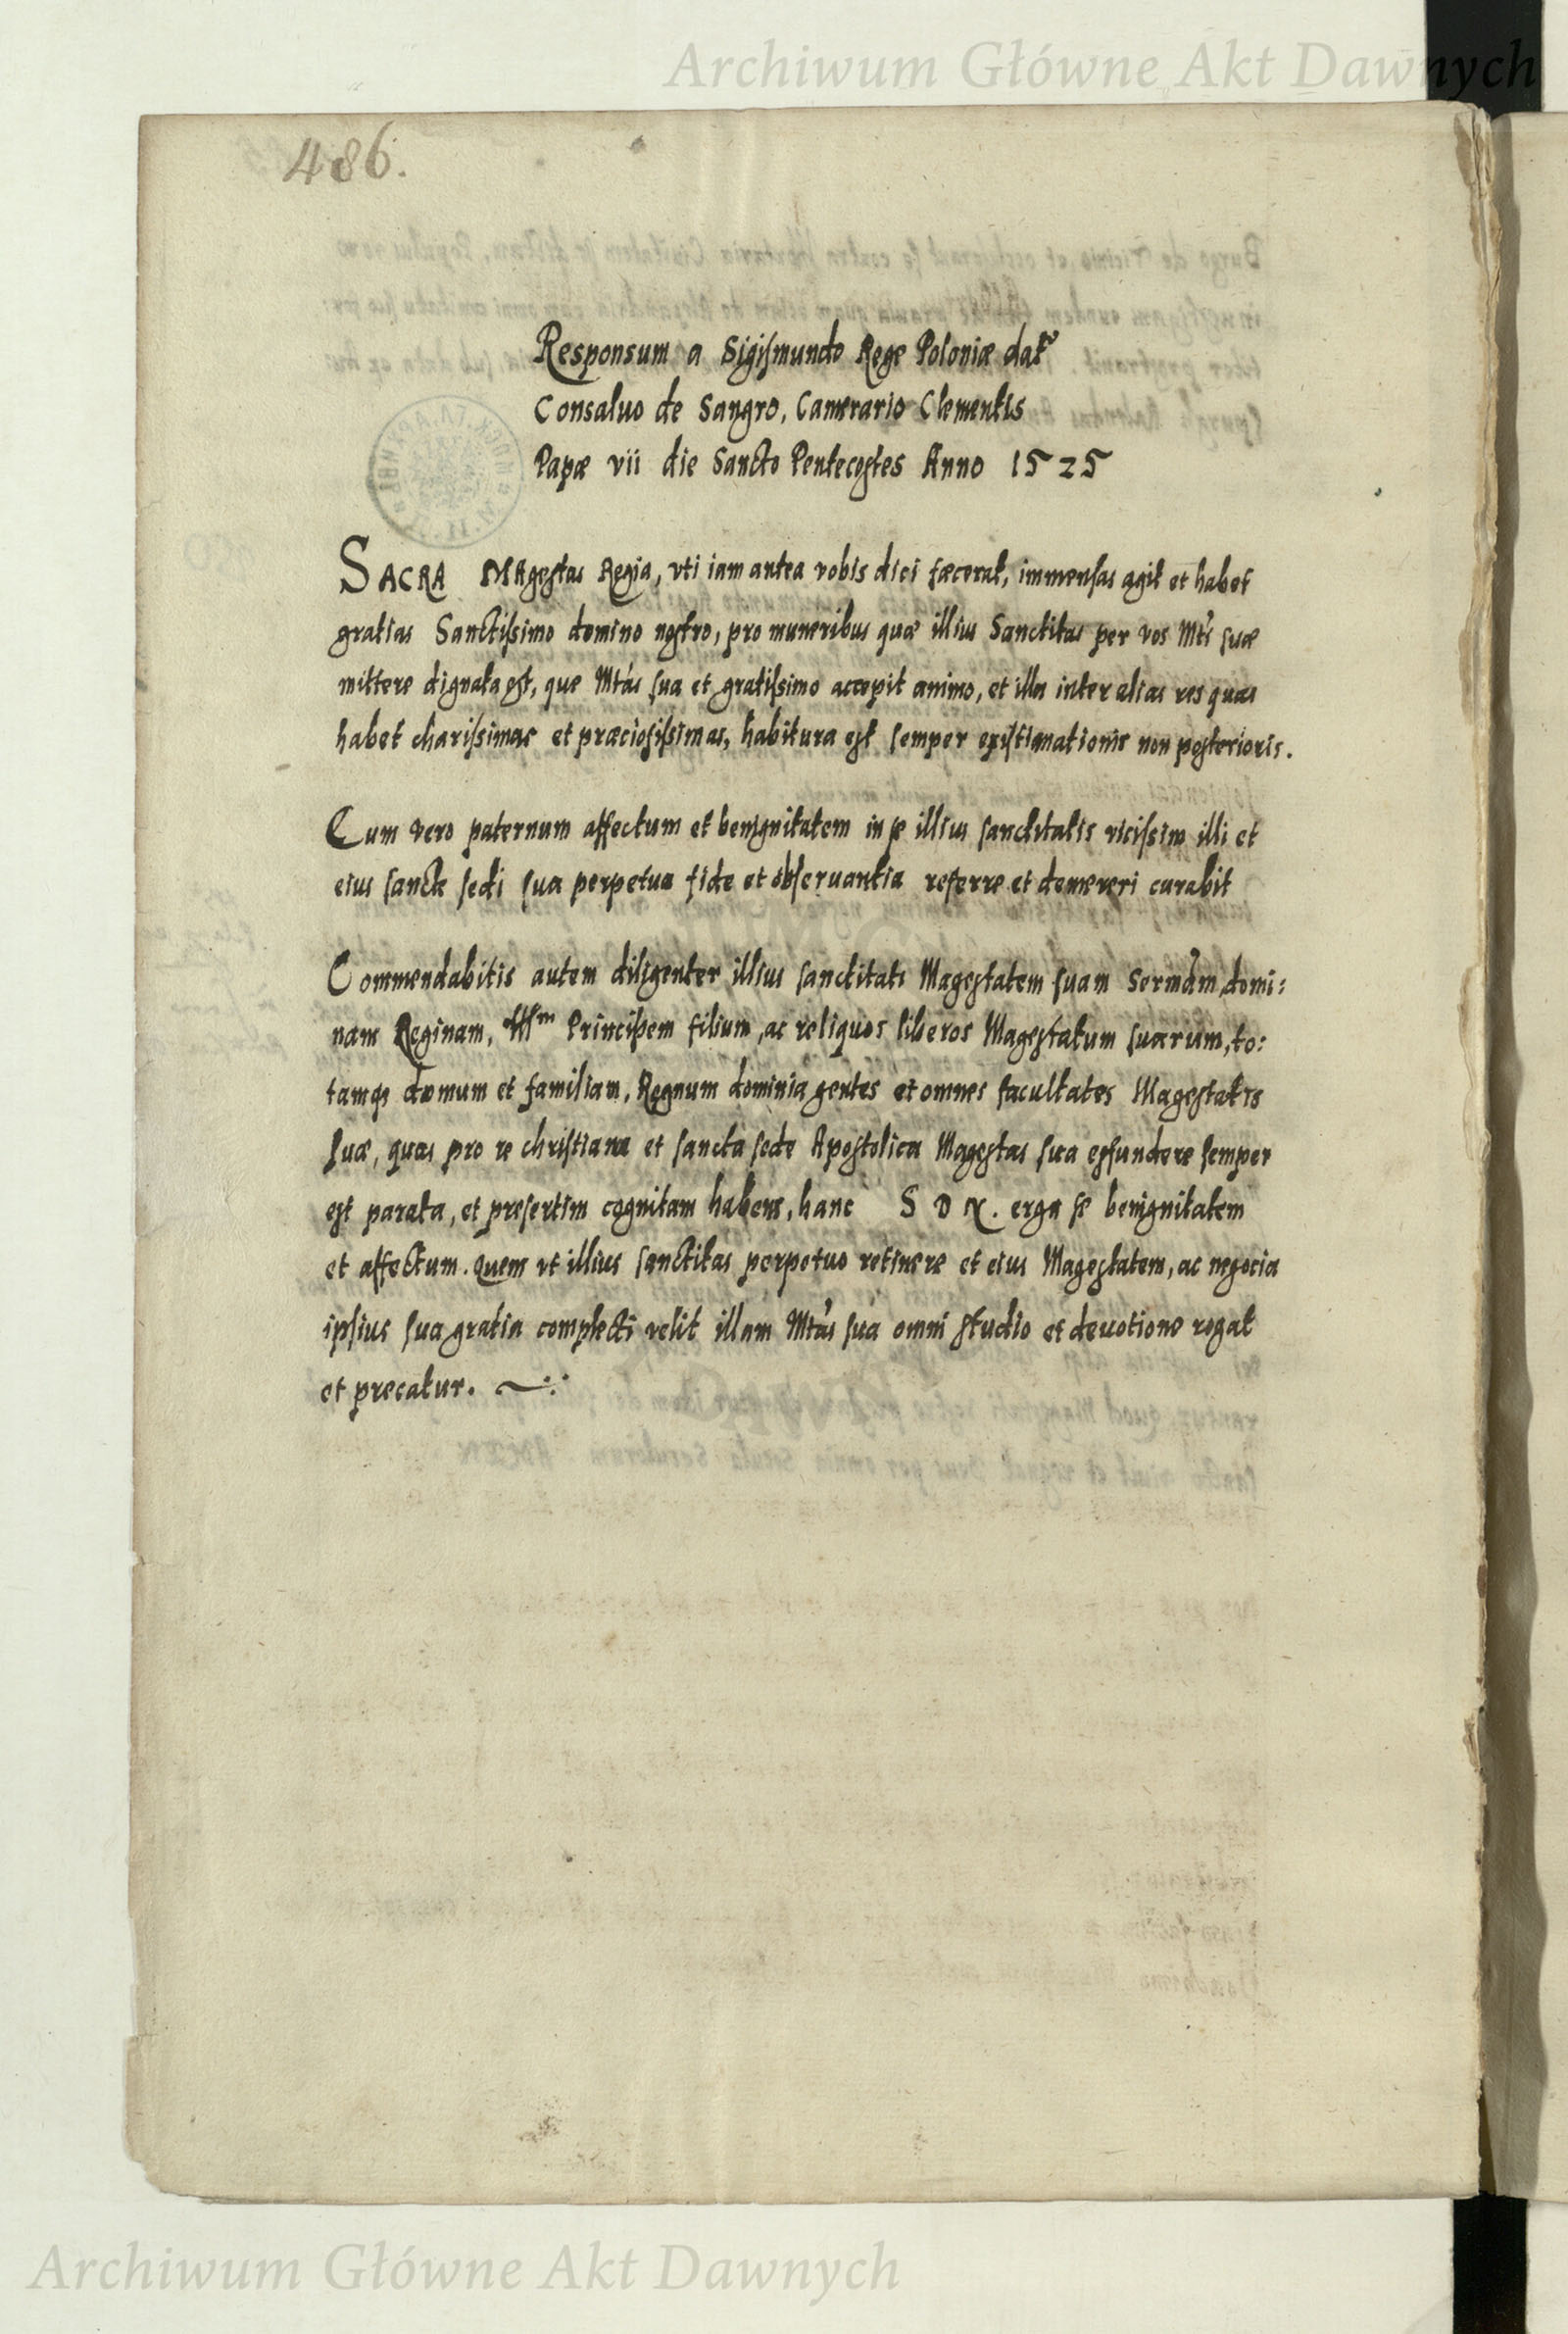 Archiwum Główne Akt Dawnych
486.
Responsum a Sigismundo Rege Poloniæ dat
Consaluo de Sangro, Camerario Clementis
Papæ vii die Sancto Pentecostes Anno 1525
SACRA MAgestas Regia, vti iam antea vobis dici fæcerat, immensas agit et habet
gratias Sanctissimo domino nostro, pro muneribus quæ illius Sanctitas per vos Mtis suæ
mittere dignata est, que Mtas sua et gratissimo accepit animo, et illa inter alias res quas
habet charissimas et præciosissimas, habitura est semper existimationis non posterioris.
Cum vero paternum affectum et benignitatem in se illius sanctitatis vicissim illi et
eius sancte sedi sua perpetua fide et obseruantia referre et demereri curabit
Commendabitis autem diligenter illius sanctitati Magestatem suam Sermam domi:
nam Reginam, Illm Principem filium, ac reliquos liberos Magestatum suarum, to:
tamqз domum et familiam, Regnum dominia gentes et omnes facultates Magestatis
suæ, quas pro re christiana et sancta sede Apostolica Magestas sua effundere semper
est parata, et presertim cognitam habens, hanc S D N. erga se benignitatem
et affectum. Quem vt illius sanctitas perpetuo retinere et eius Magestatem, ac negocia
ipsius sua gratia complecti velit illam Mtas sua omni studio et deuotione rogat
et precatur.
Archiwum Główne Akt Dawnych